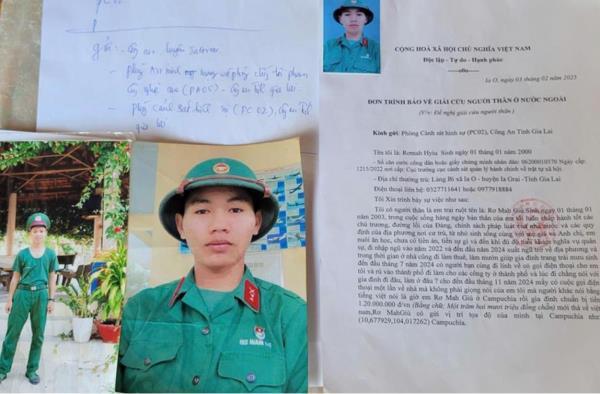 PC02
Gửi: - Công an huyện
- phòng An ninh mạng và phòng chống tội phạm
công nghệ cao (PA05) - Công an tỉnh gia lai.
- phòng cảnh sát hình sự (PC02), Công an tỉnh
gia lai
CỘNG HOÀ XÃ HỘI CHỦ NGHĨA VIỆT NAM
Độc lập - Tự do - Hạnh phúc
Ia O, ngày 03 tháng 02 năm 2025
ĐƠN TRÌNH BÁO VỀ GIẢI CỨU NGƯỜI THÂN Ở NƯỚC NGOÀI
(V/v: Đề nghị giải cứu người thân)
Kính gửi: Phòng Cảnh sát hình sự (PC02), Công An Tỉnh Gia Lai
Tên tôi là: Romah Hyiu Sinh ngày 01 tháng 01 năm 2000
- Số căn cước công dân hoặc giấy chứng minh nhân dân: Ngày cấp:
nơi cấp: Cục trưởng cục cảnh sát quản lý hành chính về trật tự xã hội
- Địa chỉ thường trú: Làng Bi xã Ia O - huyện Ia Grai -Tỉnh Gia Lai
Điện thoại liên hệ: 0327711641 hoặc 0977918884
Tôi Xin trình bày sự việc như sau:
Tôi có người thân là em trai ruột tên là: Rơ Mah Giú Sinh ngày 01 tháng 01
năm 2003, trong cuộc sống hàng ngày bản thân của em tôi luôn chấp hành tốt các
chủ trương, đường lối của Đảng, chính sách pháp luật của nhà nước và các quy
định của địa phương nơi cư trú, từ nhỏ sinh sống cùng với bố mẹ và Anh chị, em
nuôi ăn học, chưa có tiền án, tiền sự gì và đến khi đủ độ tuổi tham nghĩa vụ quân
sự, đi nhập ngũ vào năm 2022 và đến đầu năm 2024 xuất ngũ trở về địa phương và
trong thời gian ở nhà cũng đi làm thuê, làm mướn giúp gia đình trang trải mưu sinh
đến đầu tháng 7 năm 2024 có người bạn cùng đi lính về có gọi điện thoại cho em
tôi và rủ vào thành phố đi làm cho các công ty ở thành phố và lúc đi chẳng nói với
gia đình đi đâu, làm ở đâu ? cho đến tháng 11 năm 2024 mấy có cuộc gọi điện
thoại một lần về nhà mà không phải giọng nói của em tôi mà người khác nói bằng
tiếng việt nói là giờ em Rơ Mah Giú ở Campuchia rồi gia đình chuẩn bị tiền
1.20.000.000 đ/vn (Bằng chữ: Một trăm hai mươi triệu đồng chẵn) mới thả về việt
nam,Rơ MahGiú có gửi vị trí tọa độ của mình tại Campuchia như
(10,677929,104,017262) Campuchia.